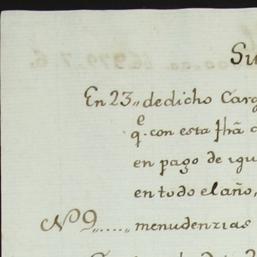 Su
En 23,, de dicho Carg
q.e con esta fha
en pago de igu
en todo el año,
Nº 9,,..... menudenzias